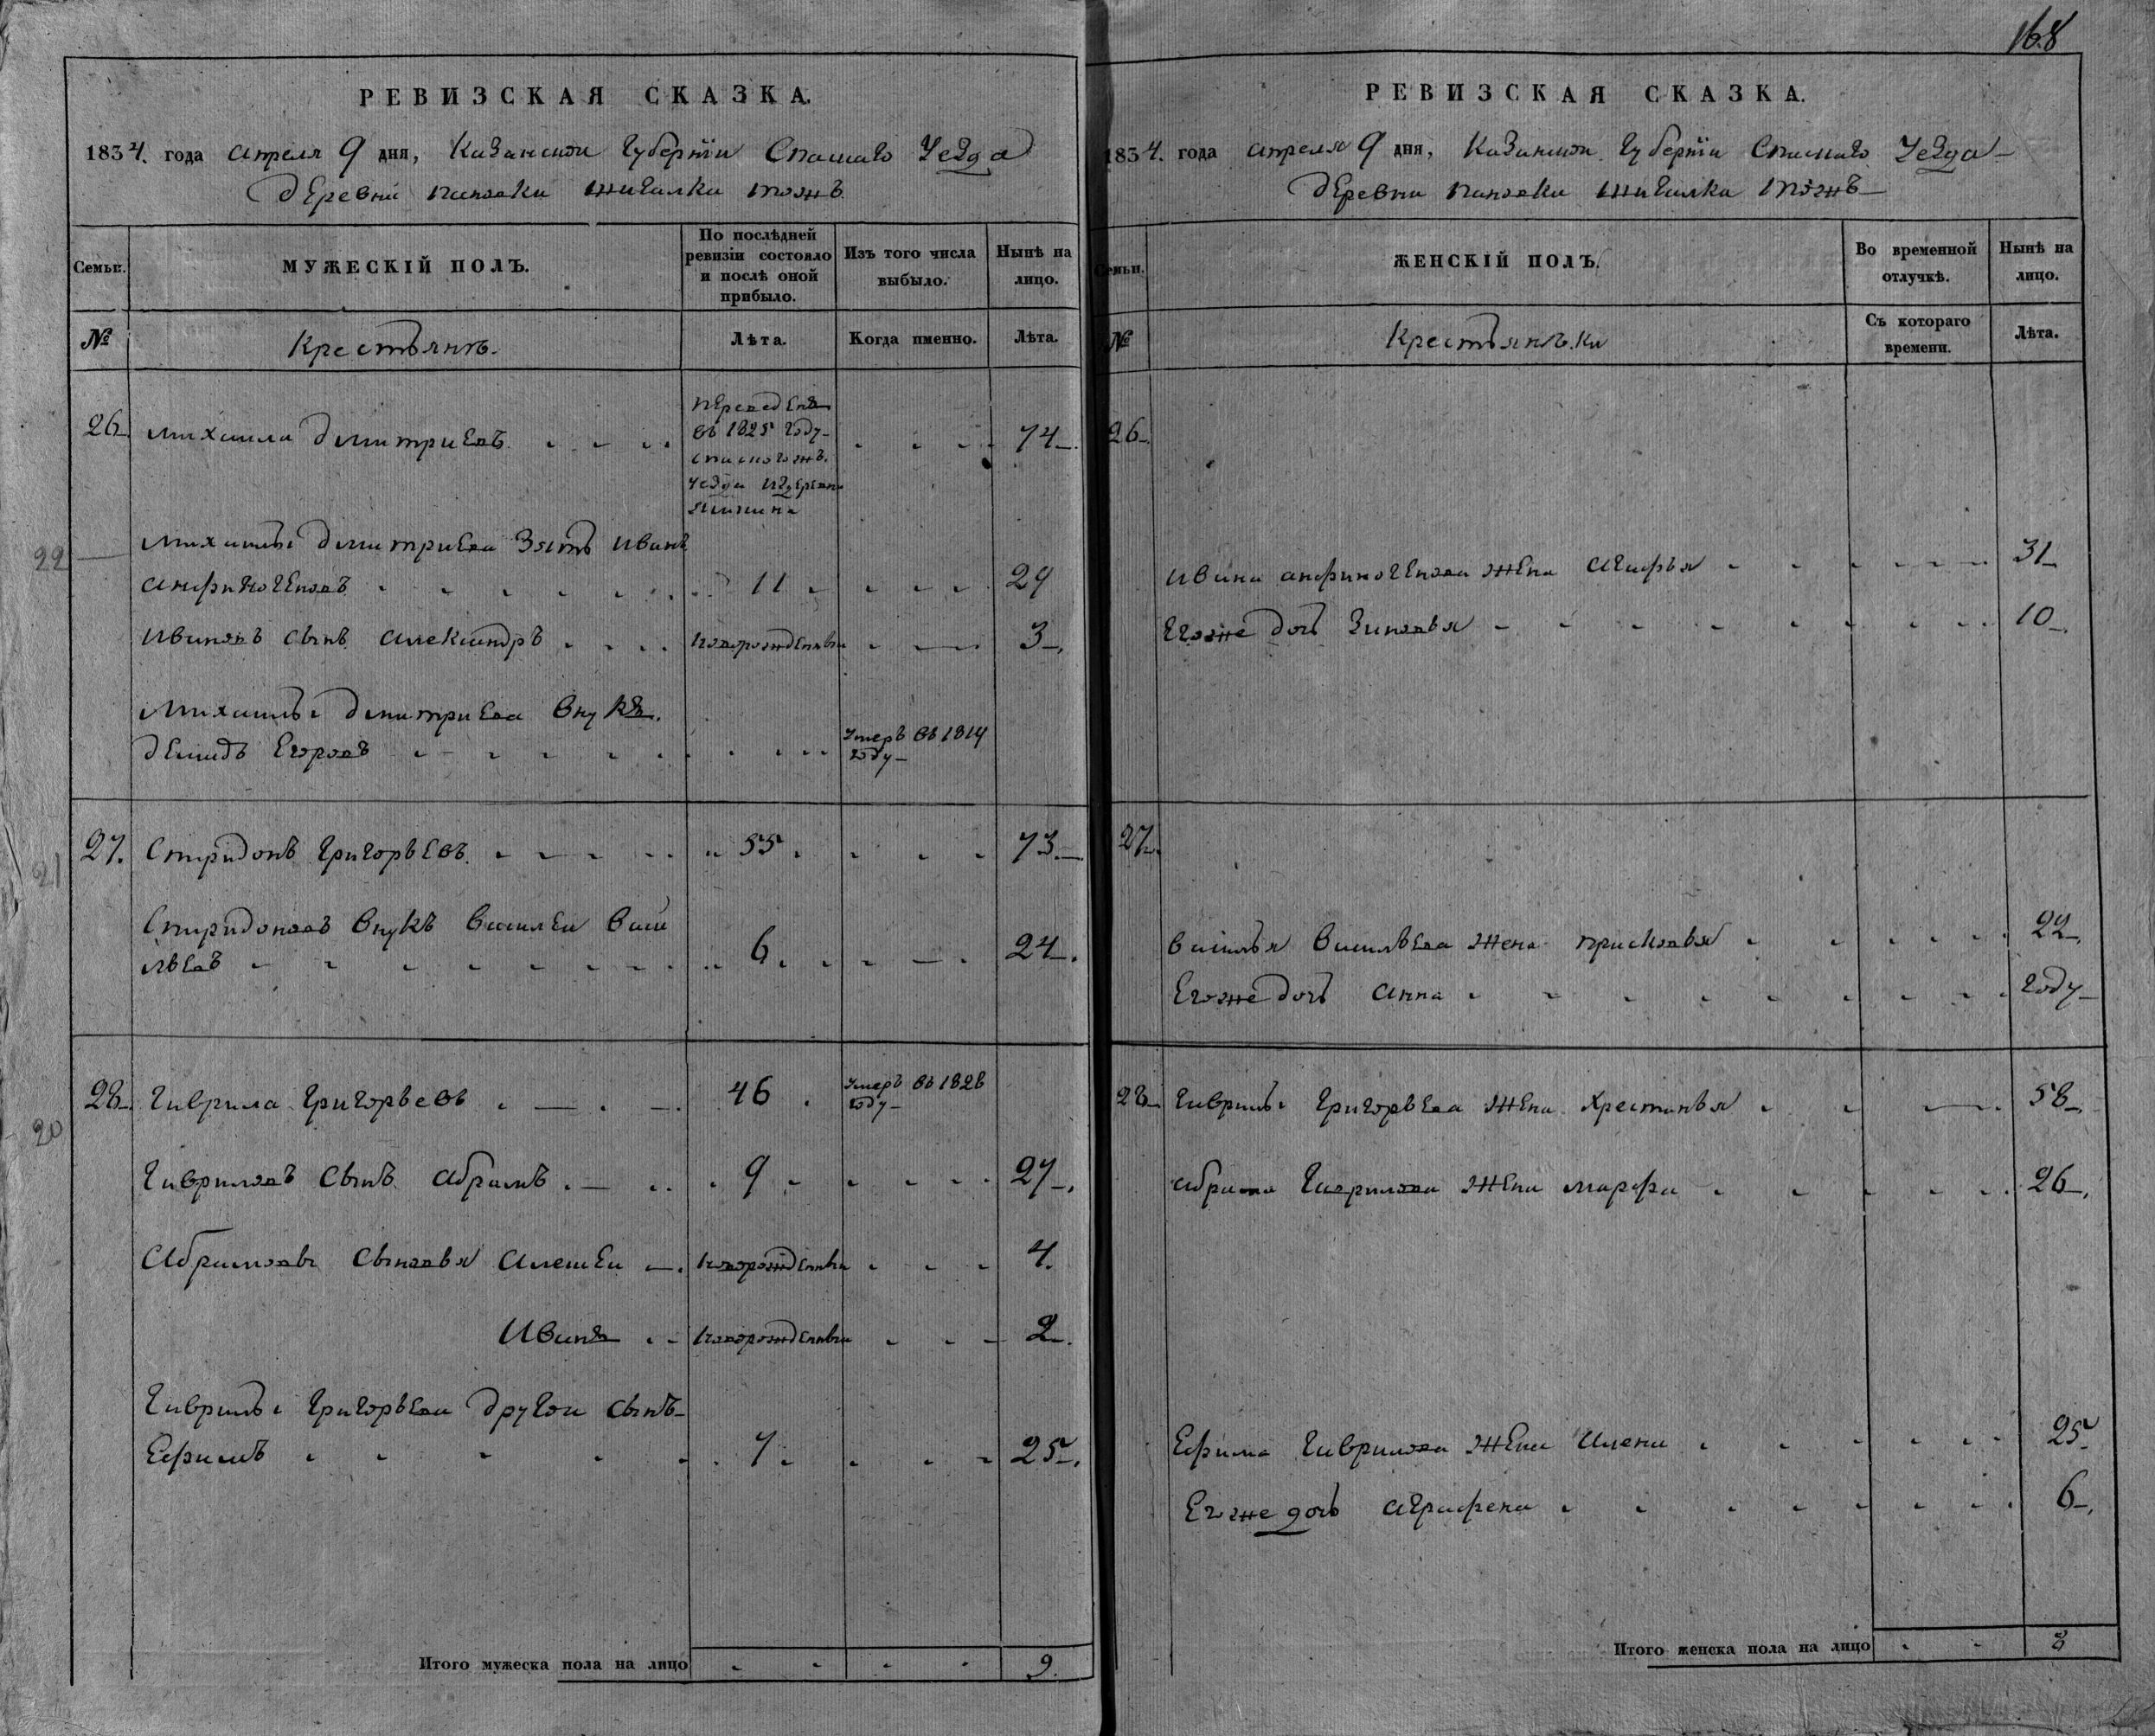 168
РЕВИЗСКАЯ СКАЗКА.
1834. года апреля 9 дня, Казанской губернїи Спаскаго Уезда
деревни жигалка тожъ
Семьи.
МУЖЕСКІЙ ПОЛЪ.
По послѣдней ревизіи состояло и послѣ оной прибыло.
Изъ того числа выбыло.
Нынѣ на лицо.
№
Крестьянъ.
Лѣта.
Когда именно.
Лѣта.
26 михаила дмитриевъ 74
переведенъ
въ 1825 году
спаскогожъ
уезда издеревни
22
михаилы дмитриева зять иванъ
анфиногеновъ 11 29
ивановъ сынъ александръ новорожденны 3
михаилы дмитриева внукъ
демидъ егоровъ
умеръ въ 1814
году
21
27. спиридонъ григорьевъ 55 73
спиридоновъ внукъ василеи васи
льевъ 6 24
28 гаврила григорьевъ 46
умеръ въ 1826
году
20
гавриловъ сынъ абрамъ 9 27
абрамовы сыновья алексеи новорожденны 4
иванъ новорожденны 2
гаврилы григорьева другои сынъ
ефимъ 7 25
Итого мужеска пола на лицо 9
РЕВИЗСКАЯ СКАЗКА.
1834. года апреля 9 дня, Казанской губернїи Спаскаго Уезда
деревни жигалка тожъ
Семьи.
ЖЕНСКІЙ ПОЛЪ.
Во временной отлучкѣ.
Нынѣ на лицо.
№
Крестьянъ.ки
Съ котораго времени.
Лѣта.
26
ивана анфиногенова жена агафья 31
егоже дочь зиновья 10
27
василья васильева жена прасковья 22
егоже дочь анна году
28 гаврилы григорьева жена хрестинья 58
абрама гаврилова жена марфа 26
ефима гаврилова жена алена 25
егоже дочь аграфена 6
Итого женска пола на лицо 8